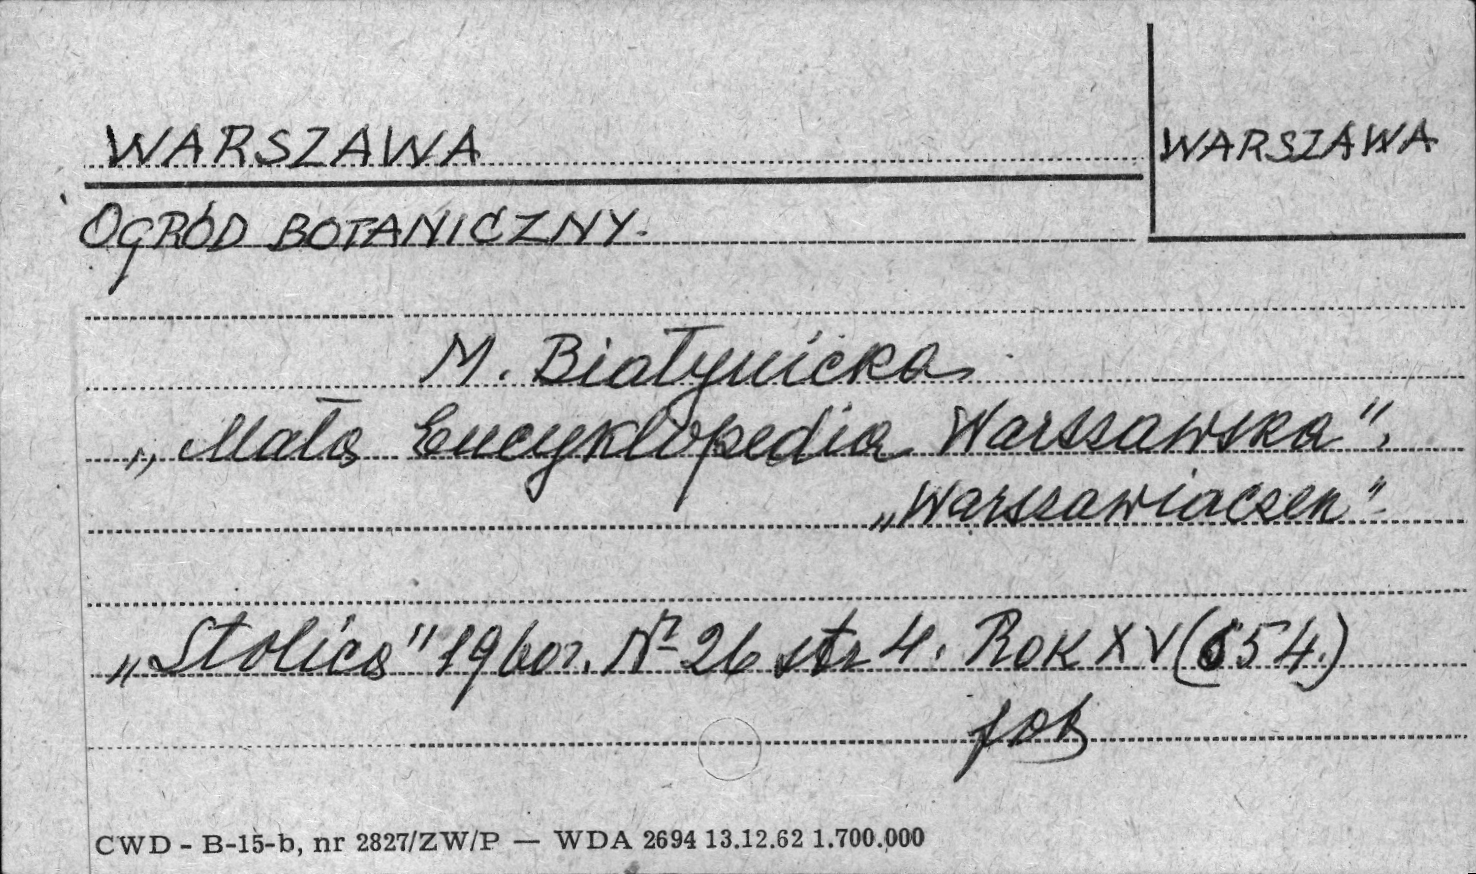 WARSZAWA
WARSZAWA
OGRÓD BOTANICZNY.
M. Białynicka
„Mała Encyklopedia Warszawska”.
„Warszawiaczek”.
„Stolica” 1960r. Nr 26 str 4. Rok XV (654.)
fot
CWD - B-15-b, nr 2827/ZW/P — WDA 2694 13.12.62 1.700.000